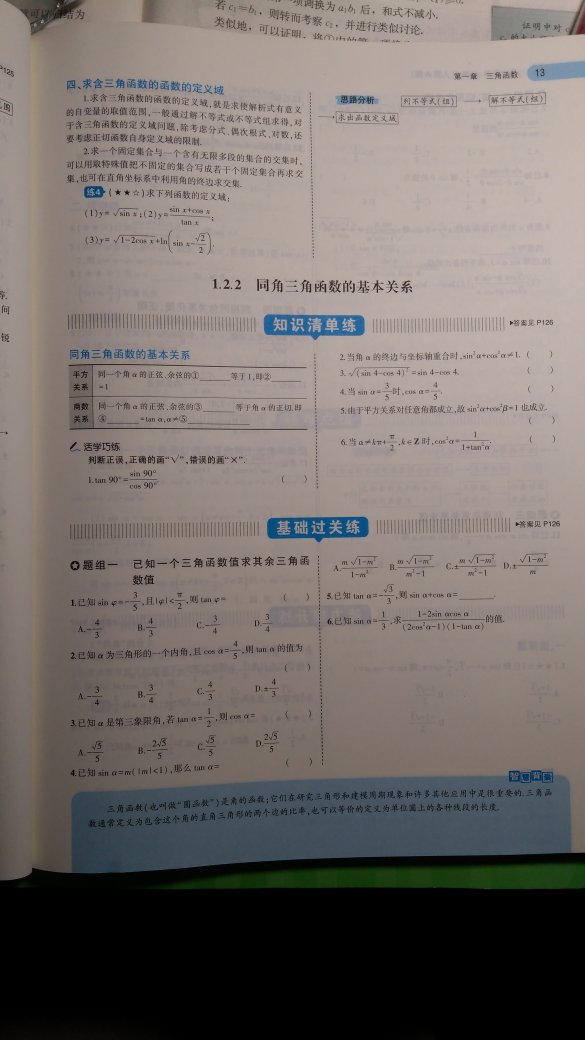 项调换为a₁b₁后，和式不减小.
若c₁=b₁，则转而考察c₂，并进行类似讨论.
类似地，可以证明，将
证明中对
P125
第一章 三角函数 13
四、求含三角函数的函数的定义域
1.求含三角函数的函数的定义域,就是求使解析式有意义
的自变量的取值范围,一般通过解不等式或不等式组求得,对
于含三角函数的定义域问题,除考虑分式、偶次根式、对数,还
要考虑正切函数自身定义域的限制.
2.求一个固定集合与一个含有无限多段的集合的交集时,
可以用取特殊值把不固定的集合写成若干个固定集合再求交
集,也可在直角坐标系中利用角的终边求交集.
练4 (★★☆)求下列函数的定义域:
(1)y=√(sin x);(2)y=(sin x+cos x)/(tan x);
(3)y=√(1-2cos x)+ln(sin x-√2/2).
思路分析 列不等式(组) → 解不等式(组)
→ 求出函数定义域
1.2.2 同角三角函数的基本关系
知识清单练
▶答案见 P126
同角三角函数的基本关系
平方关系 同一个角α的正弦、余弦的①______等于1,即②______=1
商数关系 同一个角α的正弦、余弦的③______等于角α的正切,即④______=tan α,α≠⑤______
活学巧练
判断正误,正确的画“√”,错误的画“×”.
1.tan 90°=sin 90°/cos 90°. ( )
2.当角α的终边与坐标轴重合时,sin²α+cos²α≠1. ( )
3.√((sin 4-cos 4)²)=sin 4-cos 4. ( )
4.当sin α=3/5时,cos α=4/5. ( )
5.由于平方关系对任意角都成立,故sin²α+cos²β=1也成立.
( )
6.当α≠kπ+π/2,k∈Z时,cos²α=1/(1+tan²α). ( )
基础过关练
▶答案见 P126
题组一 已知一个三角函数值求其余三角函
数值
1.已知sin φ=-3/5,且|φ|<π/2,则tan φ= ( )
A.-4/3 B.4/3 C.-3/4 D.3/4
2.已知α为三角形的一个内角,且cos α=4/5,则tan α的值为
( )
A.-3/4 B.3/4 C.4/3 D.±4/3
3.已知α是第三象限角,若tan α=1/2,则cos α= ( )
A.-√5/5 B.-2√5/5 C.√5/5 D.2√5/5
4.已知sin α=m(|m|<1),那么tan α= ( )
A.m√(1-m²)/(1-m²) B.m√(1-m²)/(m²-1) C.±m√(1-m²)/(m²-1) D.±√(1-m²)/m
5.已知tan α=-√3/3,则sin α+cos α=______.
6.已知sin α=1/3,求(1-2sin αcos α)/((2cos²α-1)(1-tan α))的值.
智慧背囊
三角函数(也叫做“圆函数”)是角的函数;它们在研究三角形和建模周期现象和许多其他应用中是很重要的.三角函
数通常定义为包含这个角的直角三角形的两个边的比率,也可以等价的定义为单位圆上的各种线段的长度.